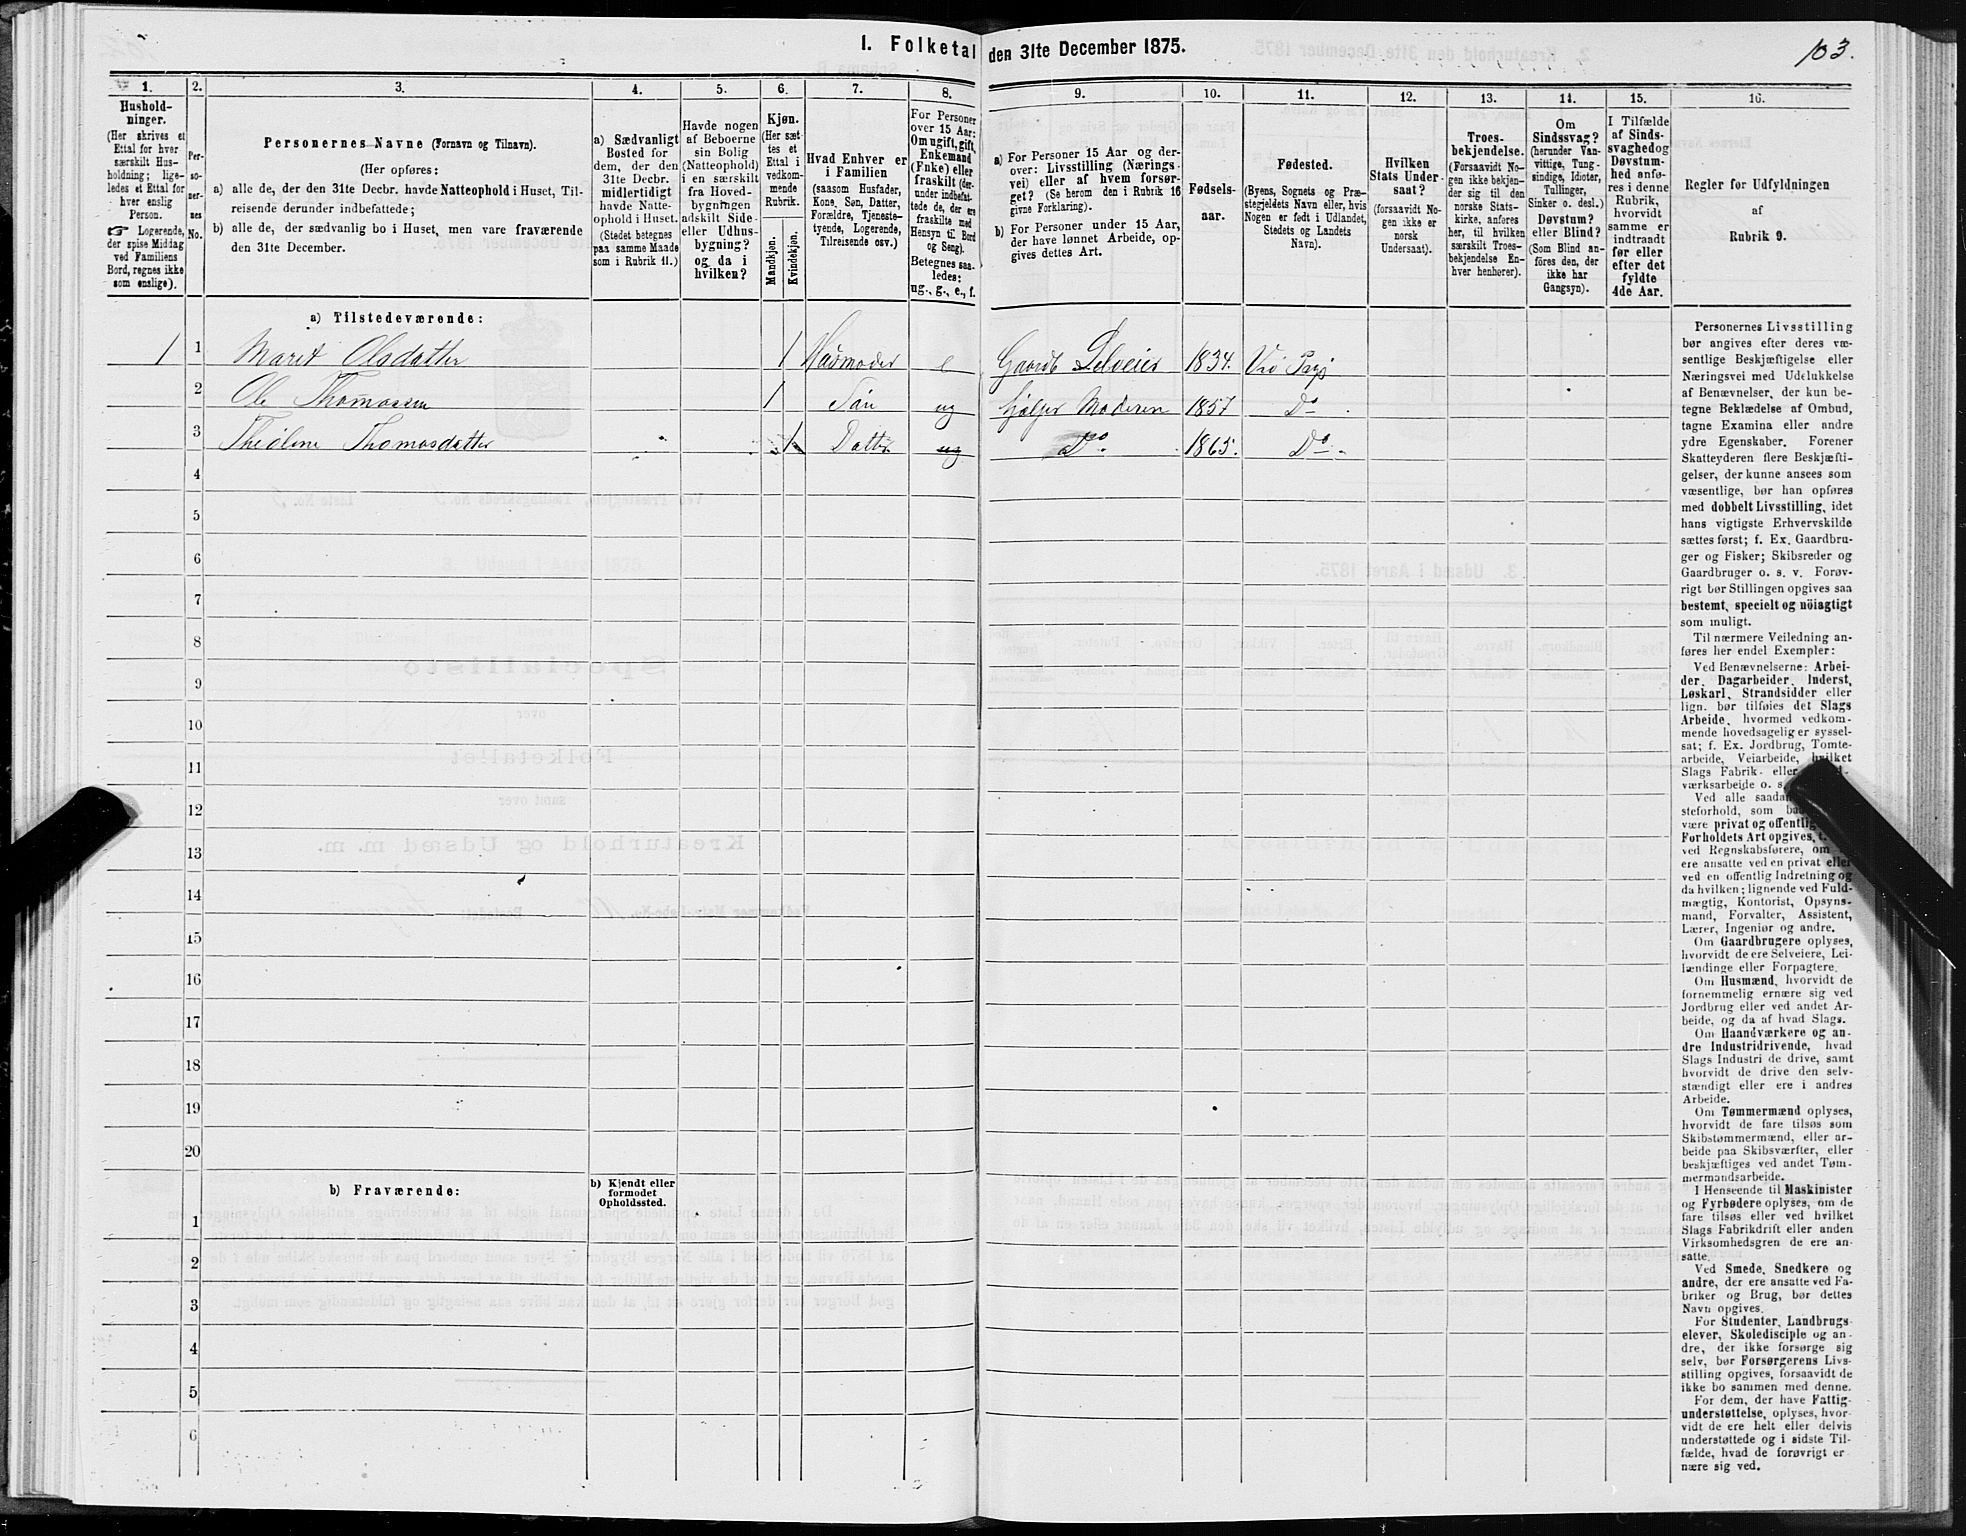 1. Folketal den 31te December 1875.
103.
1.
2.
3.
4.
5.
6.
7.
8.
9.
10.
11.
12.
13.
14.
15.
16.
Hushold-
ninger.
(Her skrives et
Ettal for hver
særskilt Hus-
holdning; lige-
ledes et Ettal for
hver enslig
Person.
☞ Logerende,
der spise Middag
ved Familiens
Bord, regnes ikke
som enslige).
Per-
so-
ner-
nes
No.
Personernes Navne (Fornavn og Tilnavn).
(Her opføres:
a) alle de, der den 31te Decbr. havde Natteophold i Huset, Til-
reisende derunder indbefattede;
b) alle de, der sædvanlig bo i Huset, men vare fraværende
den 31te December.
a) Sædvanligt
Bosted for
dem, der den
31te Decbr.
midlertidigt
havde Natte-
ophold i Huset.
(Stedet betegnes
paa samme Maade
som i Rubrik 11.)
Havde nogen
af Beboerne
sin Bolig
(Natteophold)
i en særskilt
fra Hoved-
bygningen
adskilt Side-
eller Udhus-
bygning?
og da i
hvilken?
Kjøn.
(Her sæt-
tes et
Ettal i
vedkom-
mende
Rubrik.
Mandkjøn.
Kvindekjøn.
Hvad Enhver er
i Familien
(saasom Husfader,
Kone, Søn, Datter,
Forældre, Tjeneste-
tyende, Logerende,
Tilreisende osv.)
For Personer
over 15 Aar:
Om ugift, gift,
Enkemand
(Enke) eller
fraskilt (der-
under indbefat-
tede de, der ere
fraskilte med
Hensyn til Bord
og Seng).
Betegnes saa-
ledes:
ug., g., e., f.
a) For Personer 15 Aar og der-
over: Livsstilling (Nærings-
vei) eller af hvem forsør-
get? (Se herom den i Rubrik 16
givne Forklaring).
b) For Personer under 15 Aar,
der have lønnet Arbeide, op-
gives dettes Art.
Fødsels-
aar.
Fødested.
(Byens, Sognets og Præ-
stegjeldets Navn eller, hvis
Nogen er født i Udlandet,
Stedets og Landets
Navn).
Hvilken
Stats Under-
saat?
(forsaavidt No-
gen ikke er
norsk
Undersaat).
Troes-
bekjendelse.
(Forsaavidt No-
gen ikke bekjen-
der sig til den
norske Stats-
kirke, anføres
her, til hvilken
særskilt Troes-
bekjendelse En-
hver henhører).
Om
Sindssvag?
(herunder Van-
vittige, Tung-
sindige, Idioter,
Tullinger,
Sinker o. desl.)
Døvstum?
eller Blind?
(Som Blind an-
føres den, der
ikke har
Gangsyn).
I Tilfælde
af Sinds-
svaghed og
Døvstum-
hed anfø-
res i denne
Rubrik,
hvorvidt
samme er
indtraadt
før eller
efter det
fyldte
4de Aar.
Regler for Udfyldningen
af
Rubrik 9.
a) Tilstedeværende:
1 1 Marit Olsdatter 1 Husmoder e Gaardb Selveier 1834. Vrø Pgj
2 Ole Thomassen 1 Søn ug hjælper Moderen 1857 Do
3 Thioline Thomasdatter 1 Datter ug Do. 1865. Do
4
5
6
7
8
9
10
11
12
13
14
15
16
17
18
19
20
b) Fraværende:
b) Kjendt eller
formodet
Opholdssted.
1
2
3
4
5
6
Personernes Livsstilling
bør angives efter deres væ-
sentlige Beskjæftigelse eller
Næringsvei med Udelukkelse
af Benævnelser, der kun be-
tegne Beklædelse af Ombud,
tagne Examina eller andre
ydre Egenskaber. Forener
Skatteyderen flere Beskjæfti-
gelser, der kunne ansees som
væsentlige, bør han opføres
med dobbelt Livsstilling, idet
hans vigtigste Erhvervskilde
sættes først; f. Ex. Gaardbru-
ger og Fisker; Skibsreder og
Gaardbruger o. s. v. Forøv-
rigt bør Stillingen opgives saa
bestemt, specielt og nöiagtigt
som muligt.
Til nærmere Veiledning an-
føres her endel Exempler:
Ved Benævnelserne: Arbei-
der, Dagarbeider, Inderst,
Løskarl, Strandsidder eller
lign. bør tilføies det Slags
Arbeide, hvormed vedkom-
mende hovedsagelig er syssel-
sat; f. Ex. Jordbrug, Tomte-
arbeide, Veiarbeide, hvilket
Slags Fabrik- eller
værksarbeide o. s.
Ved alle saadan
steforhold, som
være privat og offentlig
Forholdets Art opgives,
ved Regnskabsførere, om
ere ansatte ved en privat eller
ved en offentlig Indretning og
da hvilken; lignende ved Fuld-
mægtig, Kontorist, Opsyns-
mand, Forvalter, Assistent,
Lærer, Ingeniør og andre.
Om Gaardbrugere oplyses,
hvorvidt de ere Selveiere, Lei-
lændinge eller Forpagtere.
Om Husmænd, hvorvidt de
fornemmelig ernære sig ved
Jordbrug eller ved andet Ar-
beide, og da af hvad Slags.
Om Haandværkere og an-
dre Industridrivende, hvad
Slags Industri de drive, samt
hvorvidt de drive den selv-
stændigt eller ere i andres
Arbeide.
Om Tømmermænd oplyses,
hvorvidt de fare tilsøs som
Skibstømmermænd, eller ar-
beide paa Skibsværfter, eller
beskjæftiges ved andet Tøm-
mermandsarbeide.
I Henseende til Maskinister
og Fyrbødere oplyses, om de
fare tilsøs eller ved hvilket
Slags Fabrikdrift eller anden
Virksomhedsgren de ere an-
satte
Ved Smede, Snedkere og
andre, der ere ansatte ved Fa-
briker og Brug, bør dettes
Navn opgives.
For Studenter, Landbrugs-
elever, Skoledisciple og an-
dre, der ikke forsørge sig
selv, bør Forsørgerens Livs-
stilling opgives, forsaavidt de
ikke bo sammen med denne.
For dem, der have Fattig-
understøttelse, oplyses, hvor-
vidt de ere helt eller delvis
understøttede og i sidste Til-
fælde, hvad de forøvrigt er
nære sig ved.